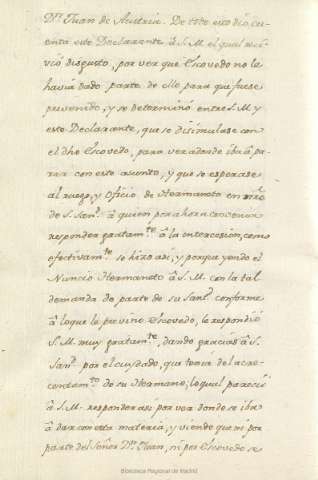 Dn. Juan de Austria. De todo esto dió cu-
enta este Declarante â S.M. el qual reci-
vió disgusto, por ver que Escovedo no le
havia dado parte de ello para que fuese
prevenido, y se determinó entre S.M. y
este Declarante, que se disimulase con
el dho Escovedo, para ver adonde iba â pa-
rar con este asunto, y que se esperase
al ruego, y Oficio de Hermanoto en nre
de S. Sand. â quien por ahora convenia
responder gratamte. â la intercesion, como
efectivamte. se hizo asi, y porque yendo el
Nuncio Hermanoto â S.M. con la tal
demanda de parte de su Sand. conforme
â loque le previno Escovedo, le respondió
S.M. muy gratamte., dando gracias â S.
Sand. por el cuydado, que tenia del acre-
centamto. de su Hermano; lo qual pareció
â S.M. responder asi por ver donde se iba
â dar con esta materia, y viendo que ni por
parte del Señor Dn. Juan, ni por Escovedo se
Biblioteca Regional de Madrid